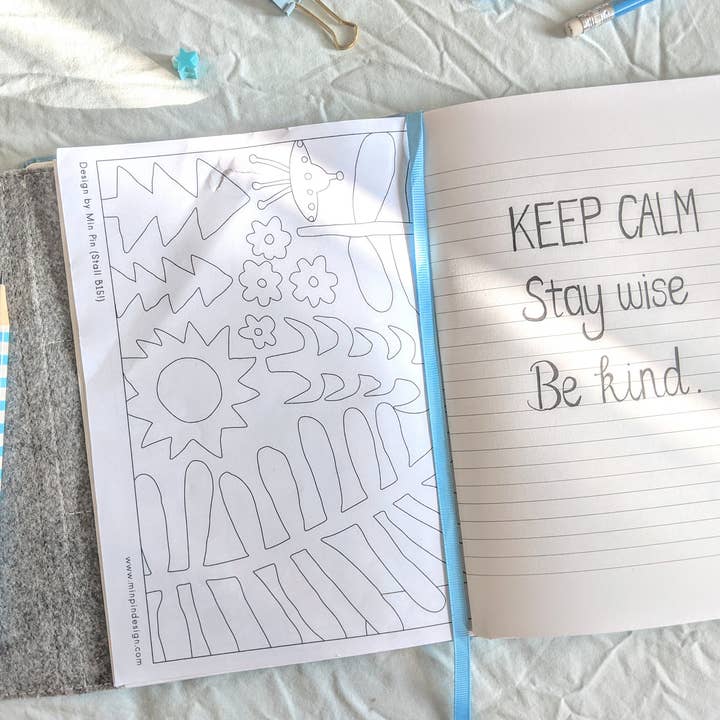 Design by Min Pin (Stall B151)
www.minpindesign.com
KEEP CALM
Stay wise
Be kind.